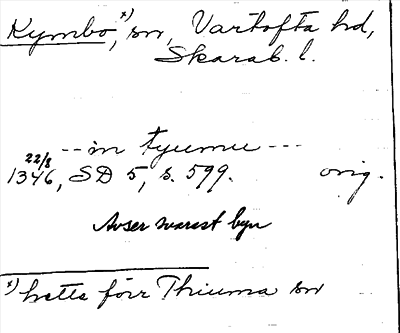 Kymbo,ˣ⁾ sn, Vartofta hd,
Skarab. l.
-- in tyumu ---
22/8
1346, SD 5, s. 599. orig.
Avser svarast byn
ˣ⁾ hette förr Thiuma sn